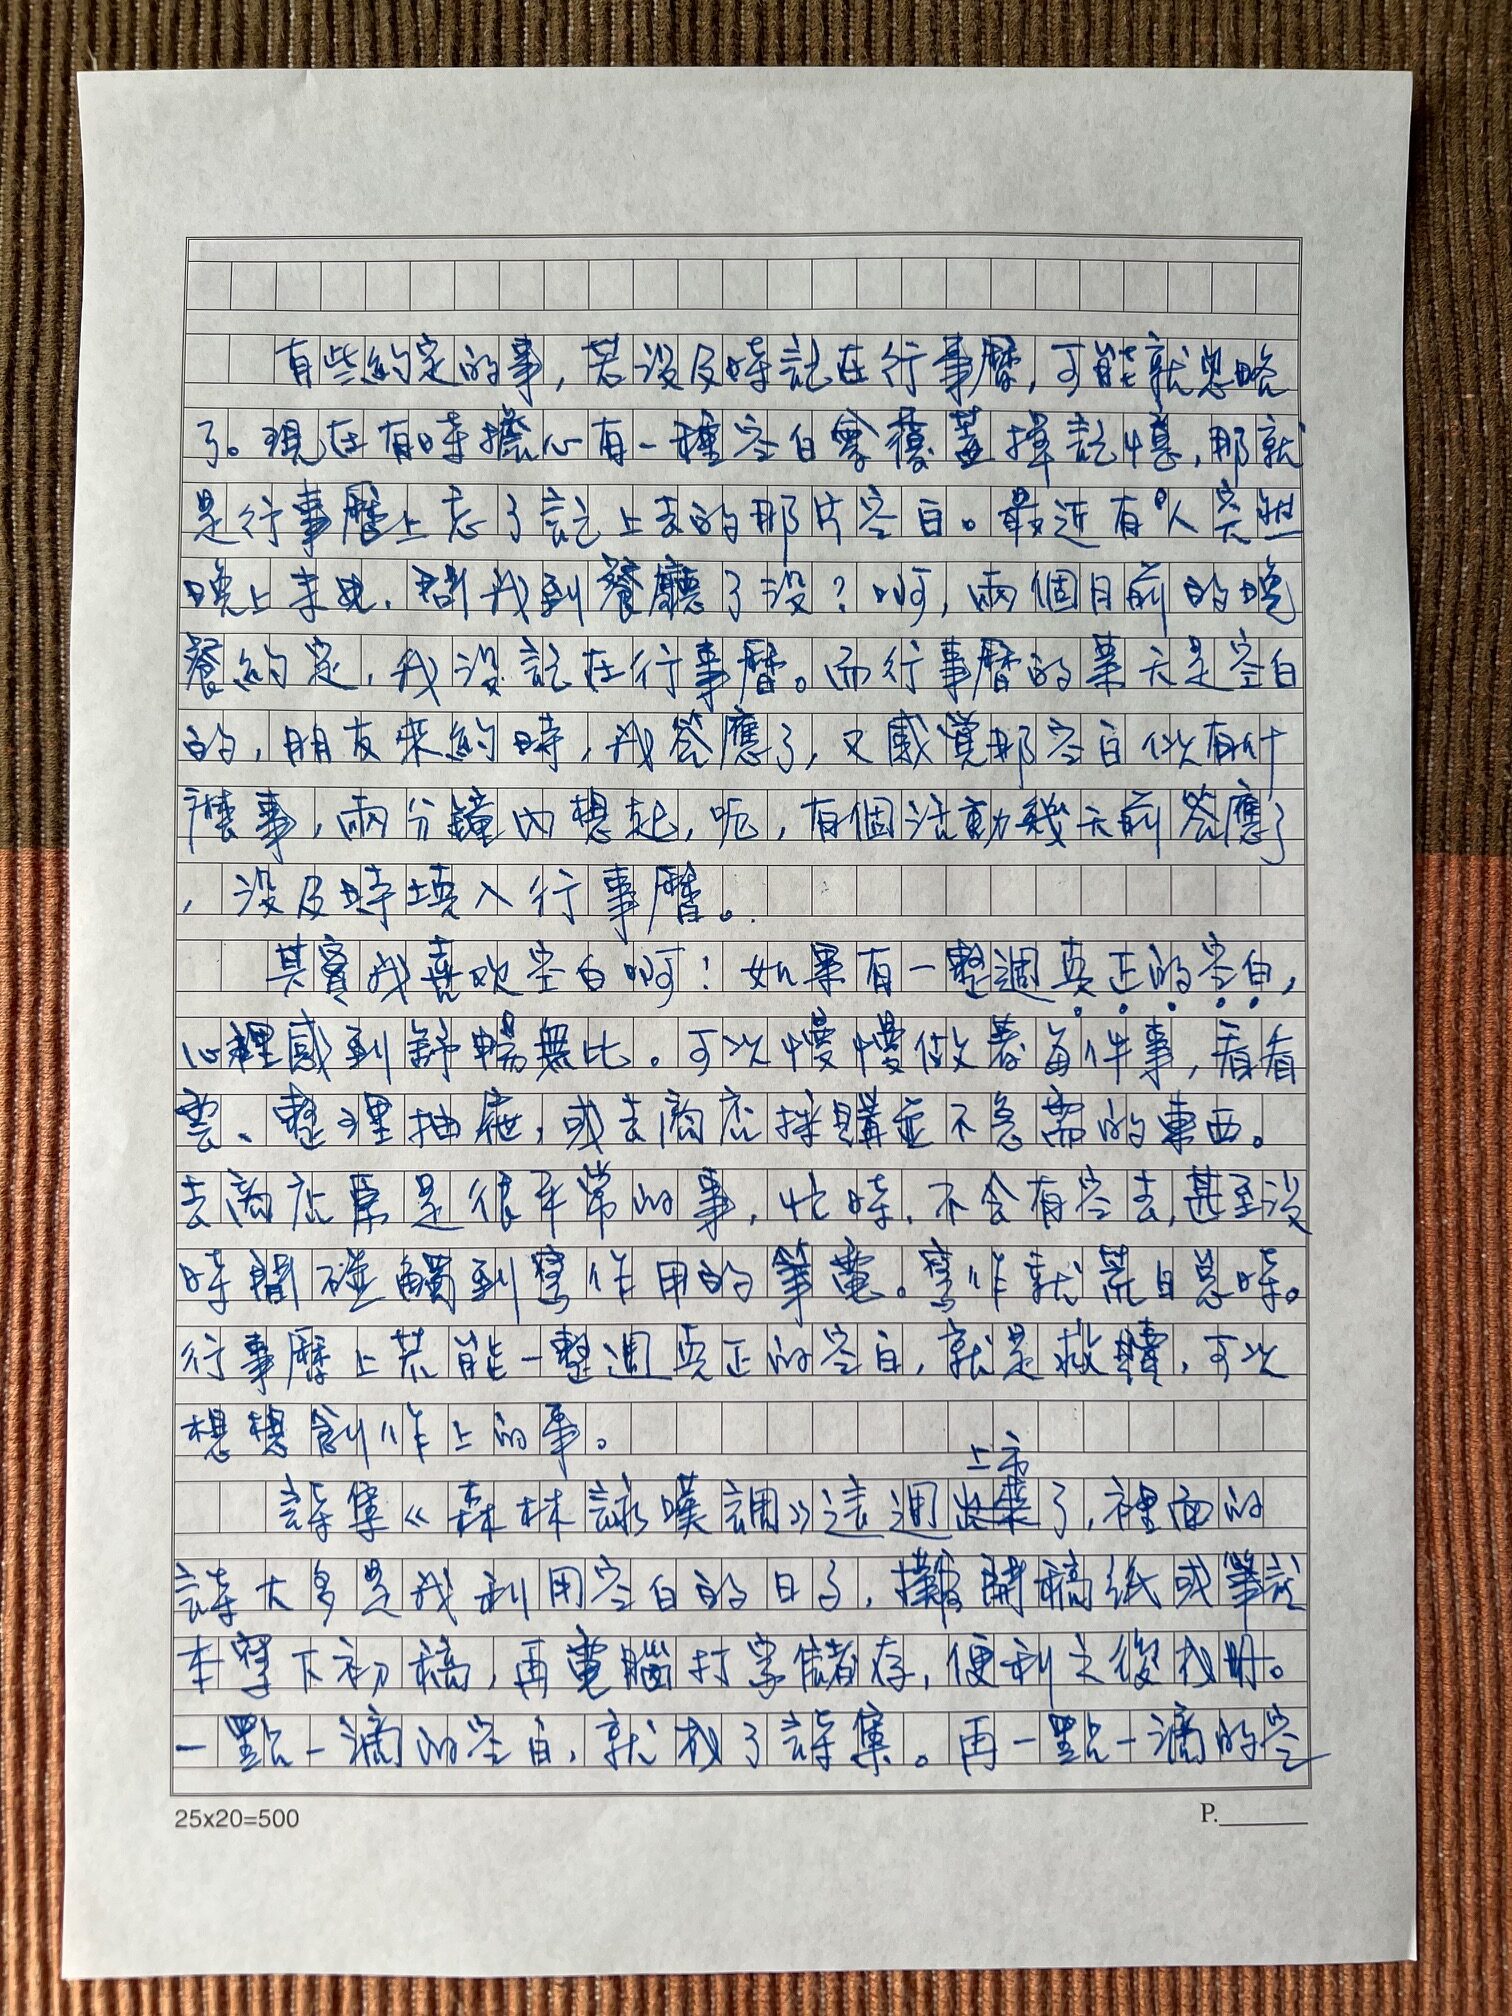 有些約定的事，若沒及時記在行事曆，可能就忽略
了。現在有時擔心有一種空白會覆蓋掉記憶，那就
是行事曆上忘了記上去的那片空白。最近有人突然
晚上來電，問我到餐廳了沒？啊，兩個月前的晚
餐約定，我沒記在行事曆。而行事曆的某天是空白
的，朋友來約時，我答應了，又感覺那空白似有什
麼事，兩分鐘內想起，呃，有個活動幾天前答應了
，沒及時填入行事曆。
其實我喜歡空白啊！如果有一整週真正的空白，
心裡感到舒暢無比。可以慢慢做著每件事，看看
雲、整理抽屜，或去商店採購並不急需的東西。
去商店原是很平常的事，忙時，不會有空去，甚至沒
時間碰觸到寫作用的筆電。寫作就荒白
行事曆上若能一整週真正的空白，就是救贖，可以
想想創作上的事。
上市
詩集《森林詠嘆調》這週出來了，裡面的
詩大多是我利用空白的日子，攤開稿紙或筆記
本寫下初稿，再電腦打字儲存，便利之後成冊。
一點一滴的空白，就成了詩集。再一點一滴的空
25x20=500
P.